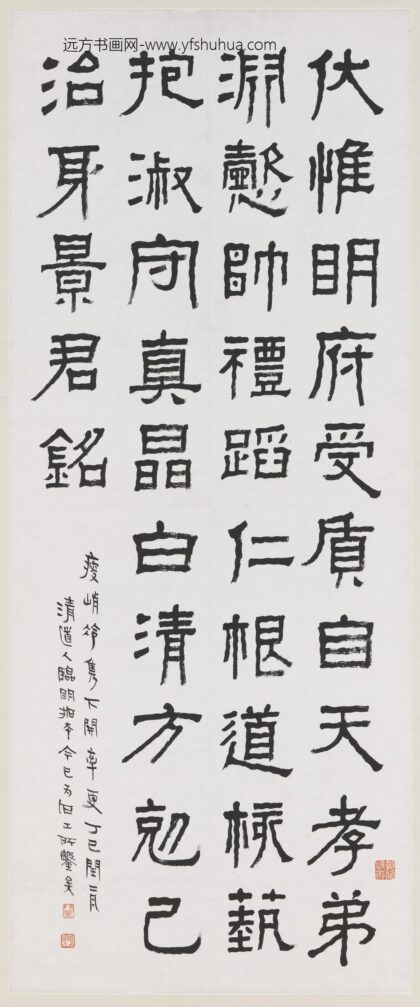 远方书画网-www.yfshuhua.com
伏惟明府受質自天孝弟
淵懿帥禮蹈仁根道核藝
抱淑守真晶白清方剋己
治身景君銘
瘦峭冷雋下開率更丁巳閏二月
清道人臨明搨本今已為俗工所鑿矣